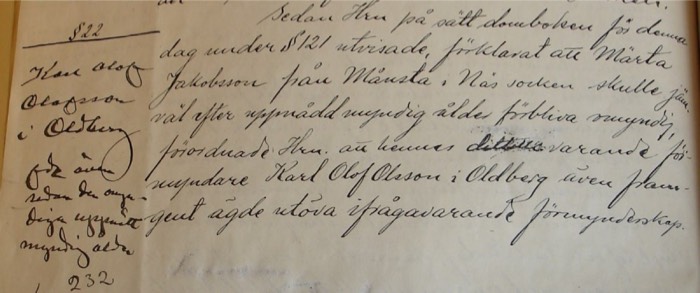 §22
Karl Olof
Olofsson
i Oldberg
även
sedan den omyn-
diga uppnått
myndig ålder
232
Sedan Hrn på sätt domboken för denna
dag under §121 utvisade, förklarat att Märta
Jakobsson från Månsta i Näs socken skulle jäm-
väl efter uppnådd myndig ålder förbliva omyndig,
förordnade Hrn. att hennes varande för-
myndare Karl Olof Olsson i Oldberg även fram-
gent ägde utöva ifrågavarande förmynderskap.